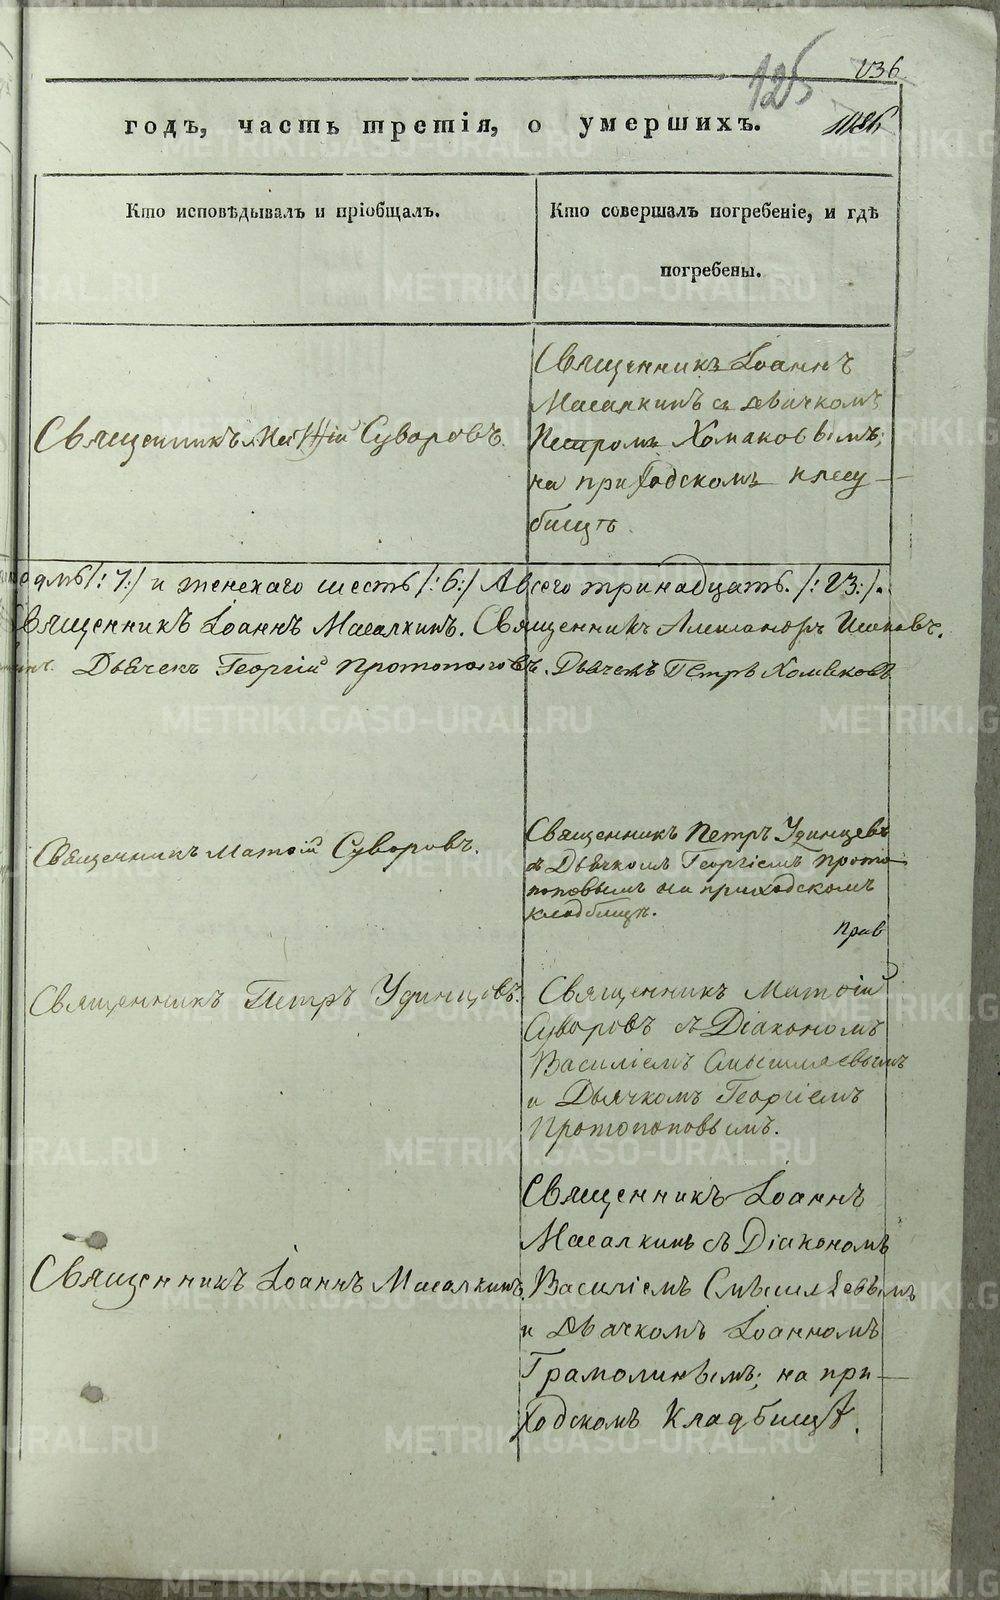 136
125
годъ, часть третія, о умершихъ.
Кто исповѣдывалъ и пріобщалъ.
Кто совершалъ погребеніе, и гдѣ
погребены.
Священникъ Іоаннъ
Масалкинъ съ дьячкомъ
Священникъ Матѳій Суворовъ.
Петромъ Хомяковымъ;
на приходскомъ кладу-
бищѣ.
/:7:/ и женскаго шесть /:6:/ А всего тринадцать. /:13:/.
Священникъ Іоаннъ Масалкинъ. Священникъ Александръ
Дьячекъ Георгій Протопоповъ. Дьячекъ Петръ Хомяковъ
Священникъ Матѳій Суворовъ.
Священникъ Петръ Удинцевъ
съ Дьячкомъ Георгіемъ Прото-
поповымъ на приходскомъ
кладбищѣ.
прав
Священникъ Петръ Удинцовъ.
Священникъ Матѳій
Суворовъ съ Діакономъ
Василіемъ Смышляевымъ
и Дьячкомъ Георгіемъ
Протопоповымъ.
Священникъ Іоаннъ
Масалкинъ съ Діакономъ
Священникъ Іоаннъ Масалкинъ.
Василіемъ Смышляевымъ
и Дьячкомъ Іоанномъ
Грамолинымъ; на при-
ходскомъ Кладбищѣ.
METRIKI.GASO-URAL.RU